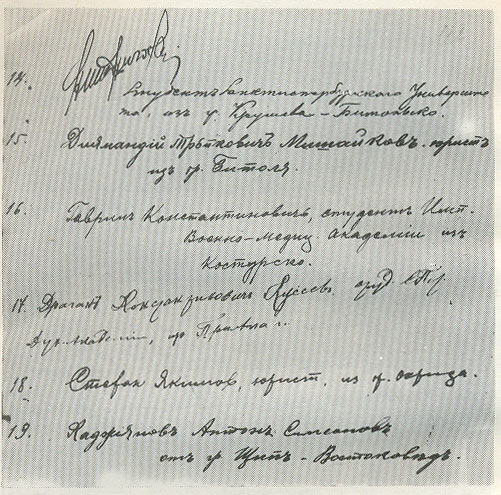 14.
Студентъ Санктпетербургского Университе
та, изъ г. Крушева – Битольско.
15. Диямандій Трьпковичъ Мишайковъ. юристъ
изъ гр. Битоля.
16. Гавриилъ Константиновичъ, студентъ Имп.
Военно-Медиц. Академіи изъ
Костурско.
17. Драганъ
Дух. Академіи, г.
18. Стефан Якимов, юрист, из г. Охрида.
19. Хаджіяновъ Антонъ Симеоновъ
отъ гр Щипъ – Востоковѣдъ.